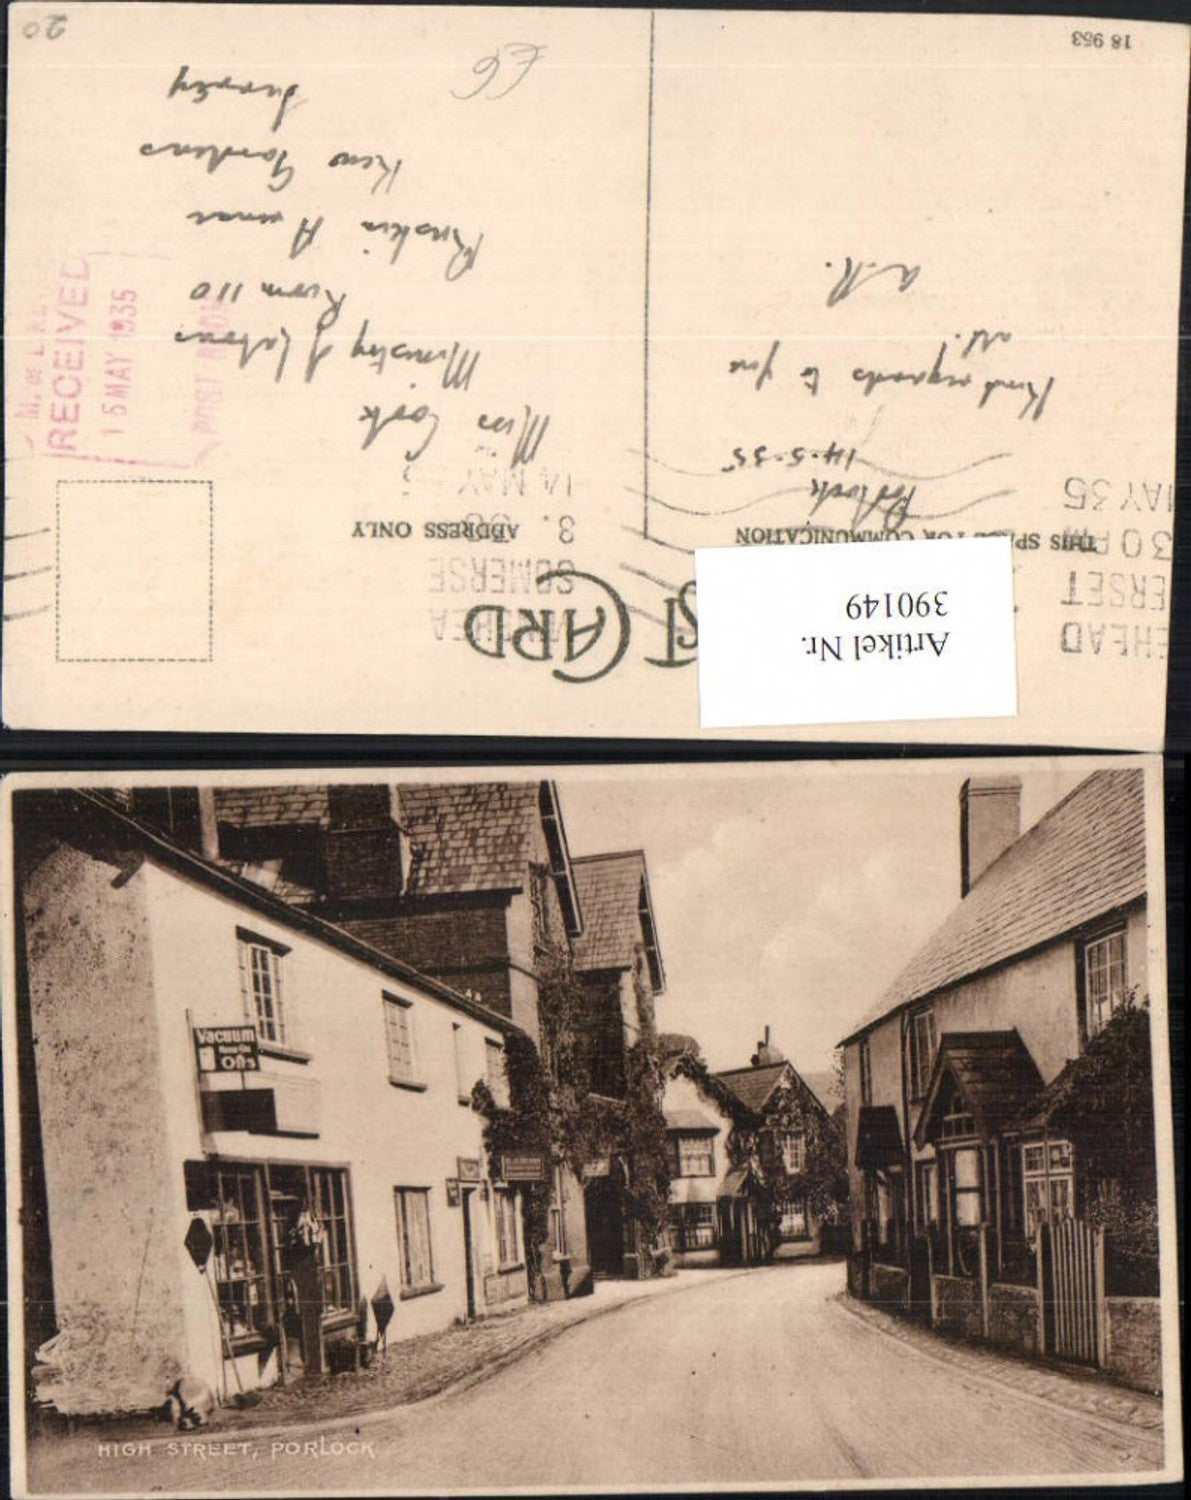 18 953
POST CARD
THIS SPACE FOR COMMUNICATION
ADDRESS ONLY
Artikel Nr.
390149
Porlock
14-5-35
Kind regards to you
all.
Miss Cook
Ministry of Labour
Room 110
Ruskin Avenue
Kew Gardens
Surrey
£6
20
RECEIVED
15 MAY 1935
POST ROOM
EHEAD
ERSET
30 AM
MAY 35
SOMERSE
14 MAY
Vacuum
Oils
HIGH STREET, PORLOCK